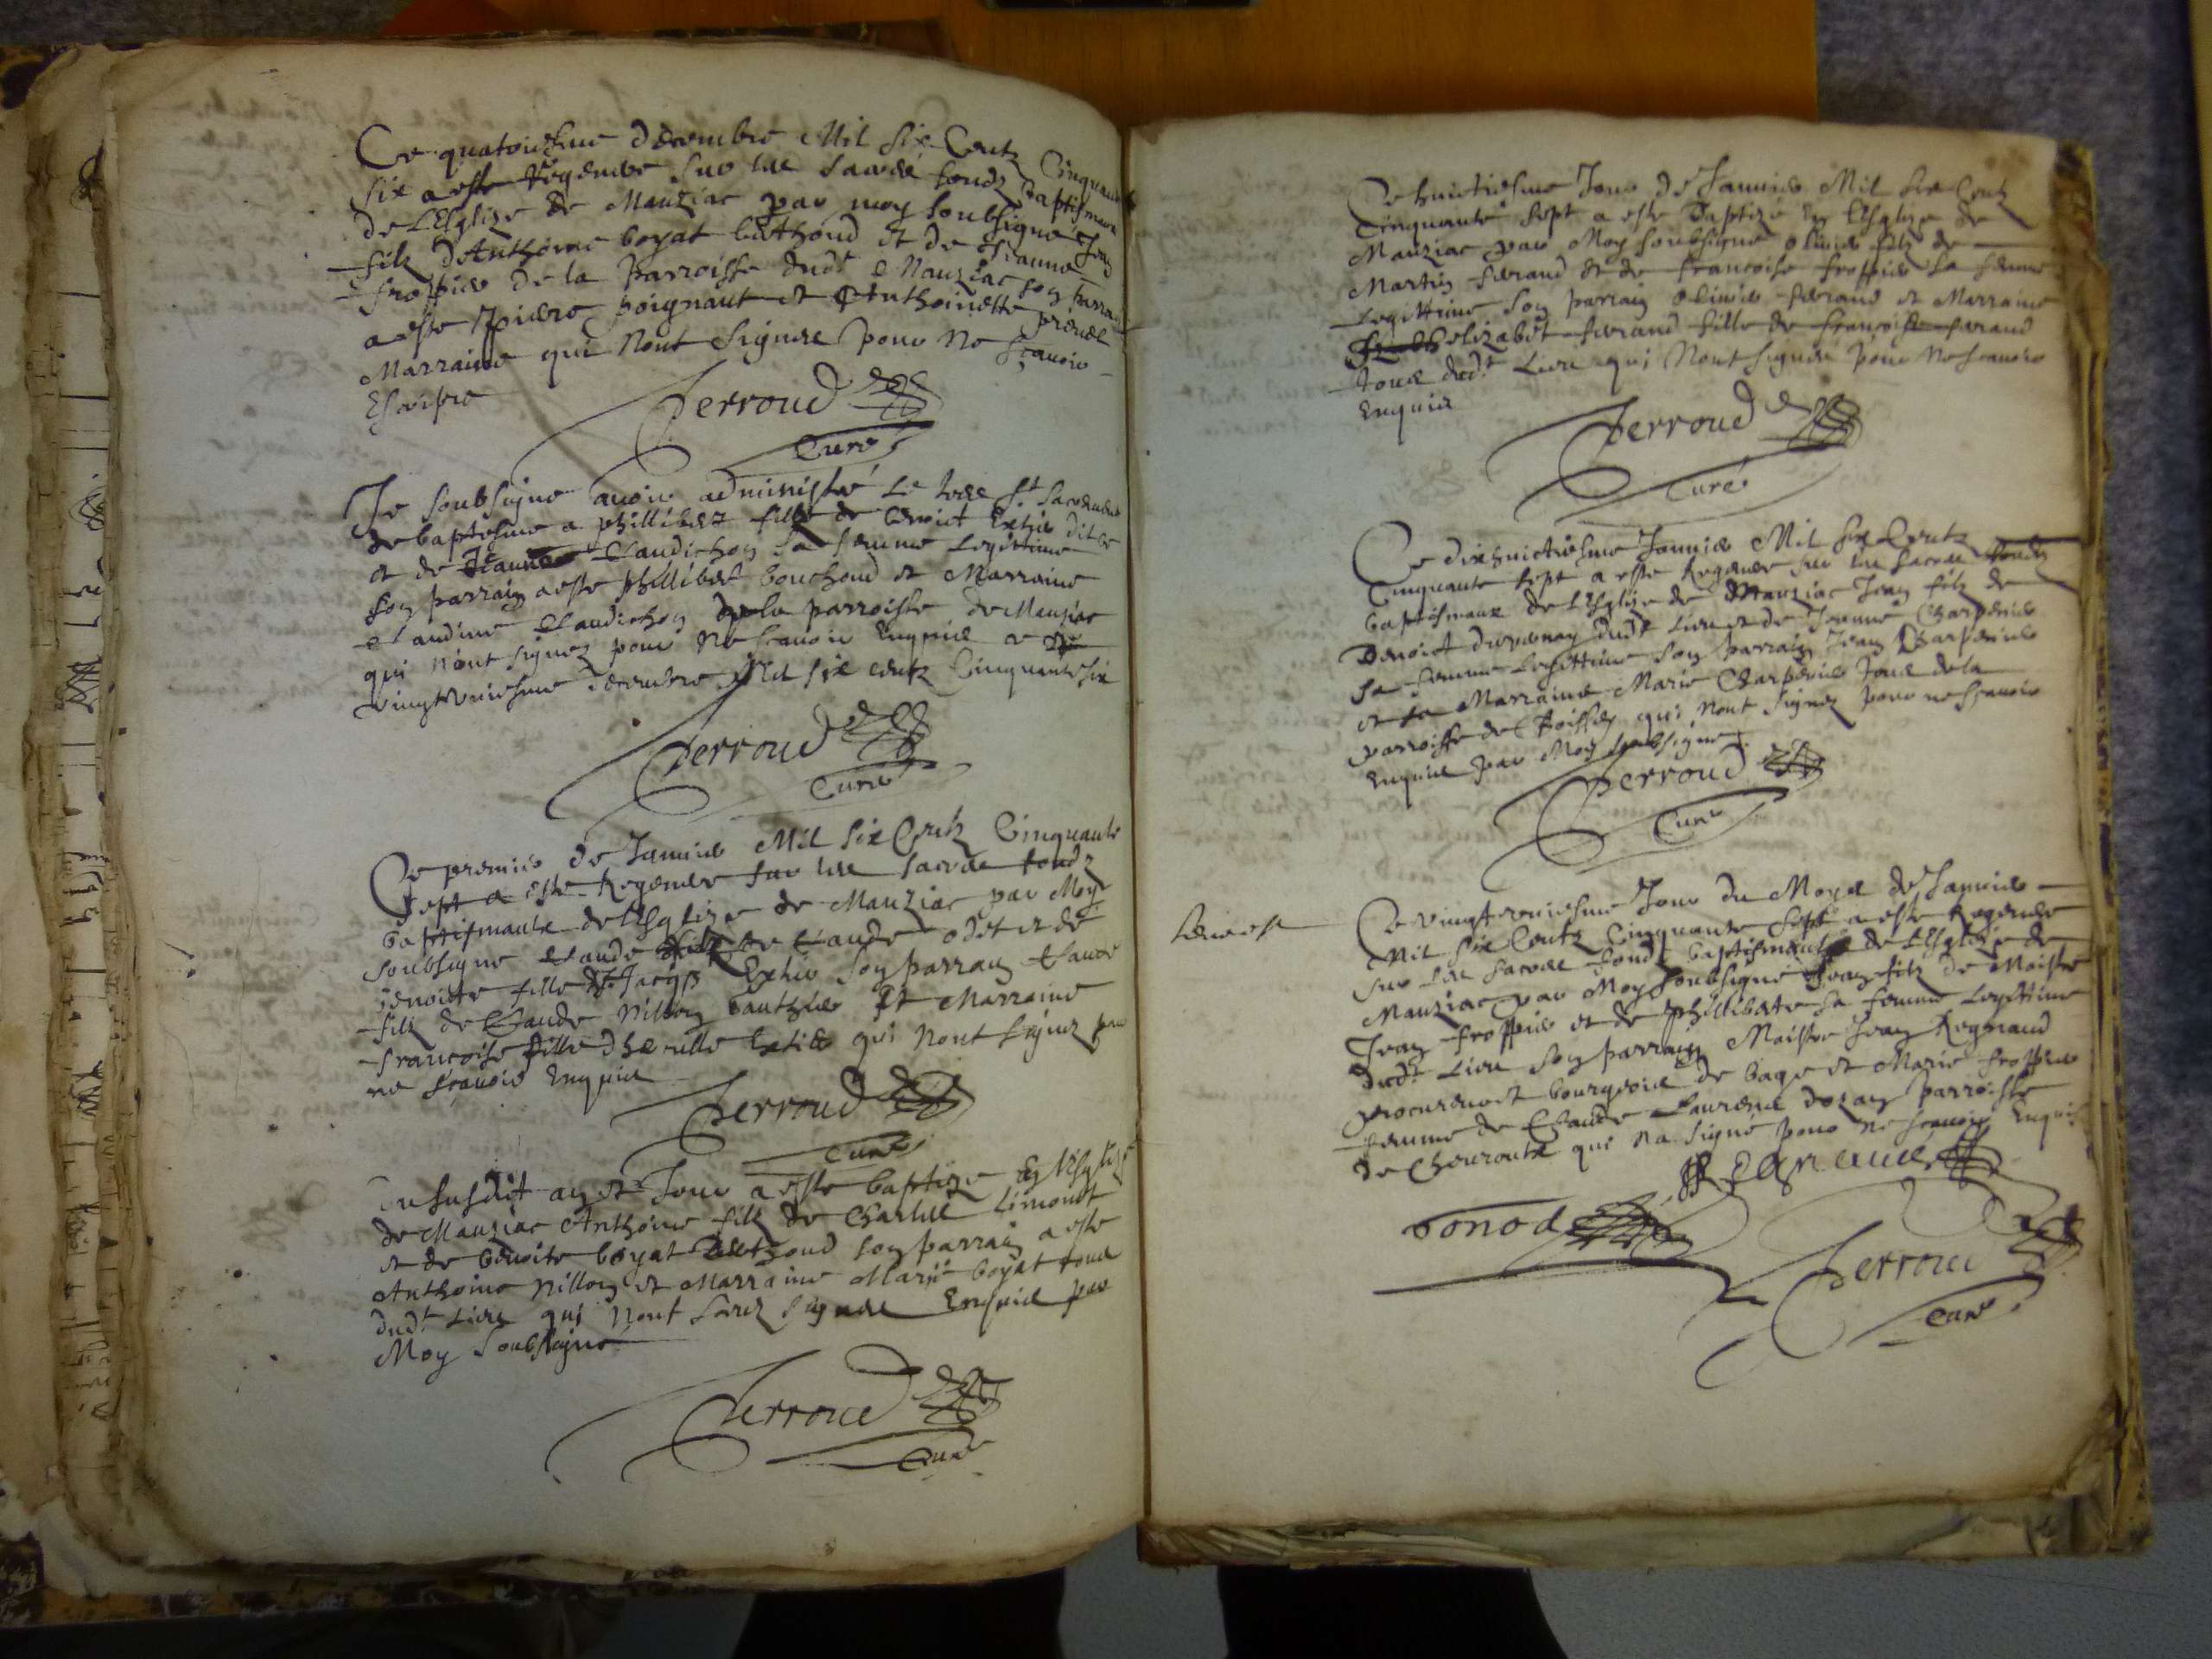 Ce quatoriesme decembre Mil Six Centz Cinquante
six a este Regenere sur les sacrés fondz baptismaux
de l'Esglize de Manziac par moy soubsigné Jean
filz d'Anthoine boyat berthoud et de Jeanne
froppier de la parroisse dudt Manziac son parrain
a este pierre poignant et Anthoinette
Marraine qui nont signez pour ne scavoir
Escripre
Perroud
Curé
Je soubsigne avoir administré Le tres st sacrement
de baptesme a phillibert fille de benoict
et de Claudichon sa femme Legittime
son parrain a este phillibert bouchoud et Marraine
Claudine Claudichon de la parroisse de Manziac
qui n'ont signez pour ne scavoir Enquis ce
vingtuniesme decembre Mil six centz Cinquante six
Perroud
Curé
Ce premier de Janvier Mil Six Centz Cinquante
sept a este Regenere sur les sacrés fondz
baptismaulx de l'Esglize de Manziac par Moy
soubsigne Claude filz de Claude odet et de
benoicte fille de Jacqs son parrain Claude
filz de Claude Nillon bauthier Et Marraine
francoise fille qui nont signez pour
ne scavoir Enquis
Perroud
Curé
Du susdit an et Jour a este baptize En l'Esglize
de Manziac Anthoine filz de Charles Limondt
et de benoite boyat berthoud son parrain a este
Anthoine Nillon et Marraine Marie boyat tous
dudt Lieu qui nont signez Enquis par
Moy soubsigné
Perroud
Curé
Ce huictiesme Jour de Janvier Mil Six Centz
Cinquante sept a este baptizé En l'Esglize de
Manziac par Moy soubsigné olivier filz de
Martin ferand et de francoise froppier sa femme
Legittime son parrain olivier ferand et Marraine
elizabet ferand fille de francois ferand
tous dudt Lieu qui n'ont signés pour ne scavoir
Enquis
Perroud
Curé
Ce dixhuictiesme Janvier Mil Six Centz
Cinquante sept a este Regenere sur les sacrés fondz
baptismaux de l'Esglize de Manziac Jean filz de
Benoict dudt Lieu et de Jeanne Charpentier
sa femme Legittime son parrain Jean Charpentier
et sa Marraine Marie Charpentier tous de la
parroisse de Boissey qui nont signez pour ne scavoir
Enquis par Moy soubsigné
Perroud
Curé
Ce vingt Jour du Moys de Janvier
Mil Six Centz Cinquante Sept a este Regenere
sur les sacrés fondz baptismaulx de l'Esglize de
Manziac par Moy soubsigné Jean filz de Maistre
Jean froppier et de phillibertte sa femme Legittime
dudt Lieu son parrain Maistre Jean Regnaud
procureur et bourgeois de bage et Marie froppier
femme de Claude Laurens dozan parroisse
de Chevroux qui na signé pour ne scavoir Enquis
Regnaud
Tonod
Perroud
Curé